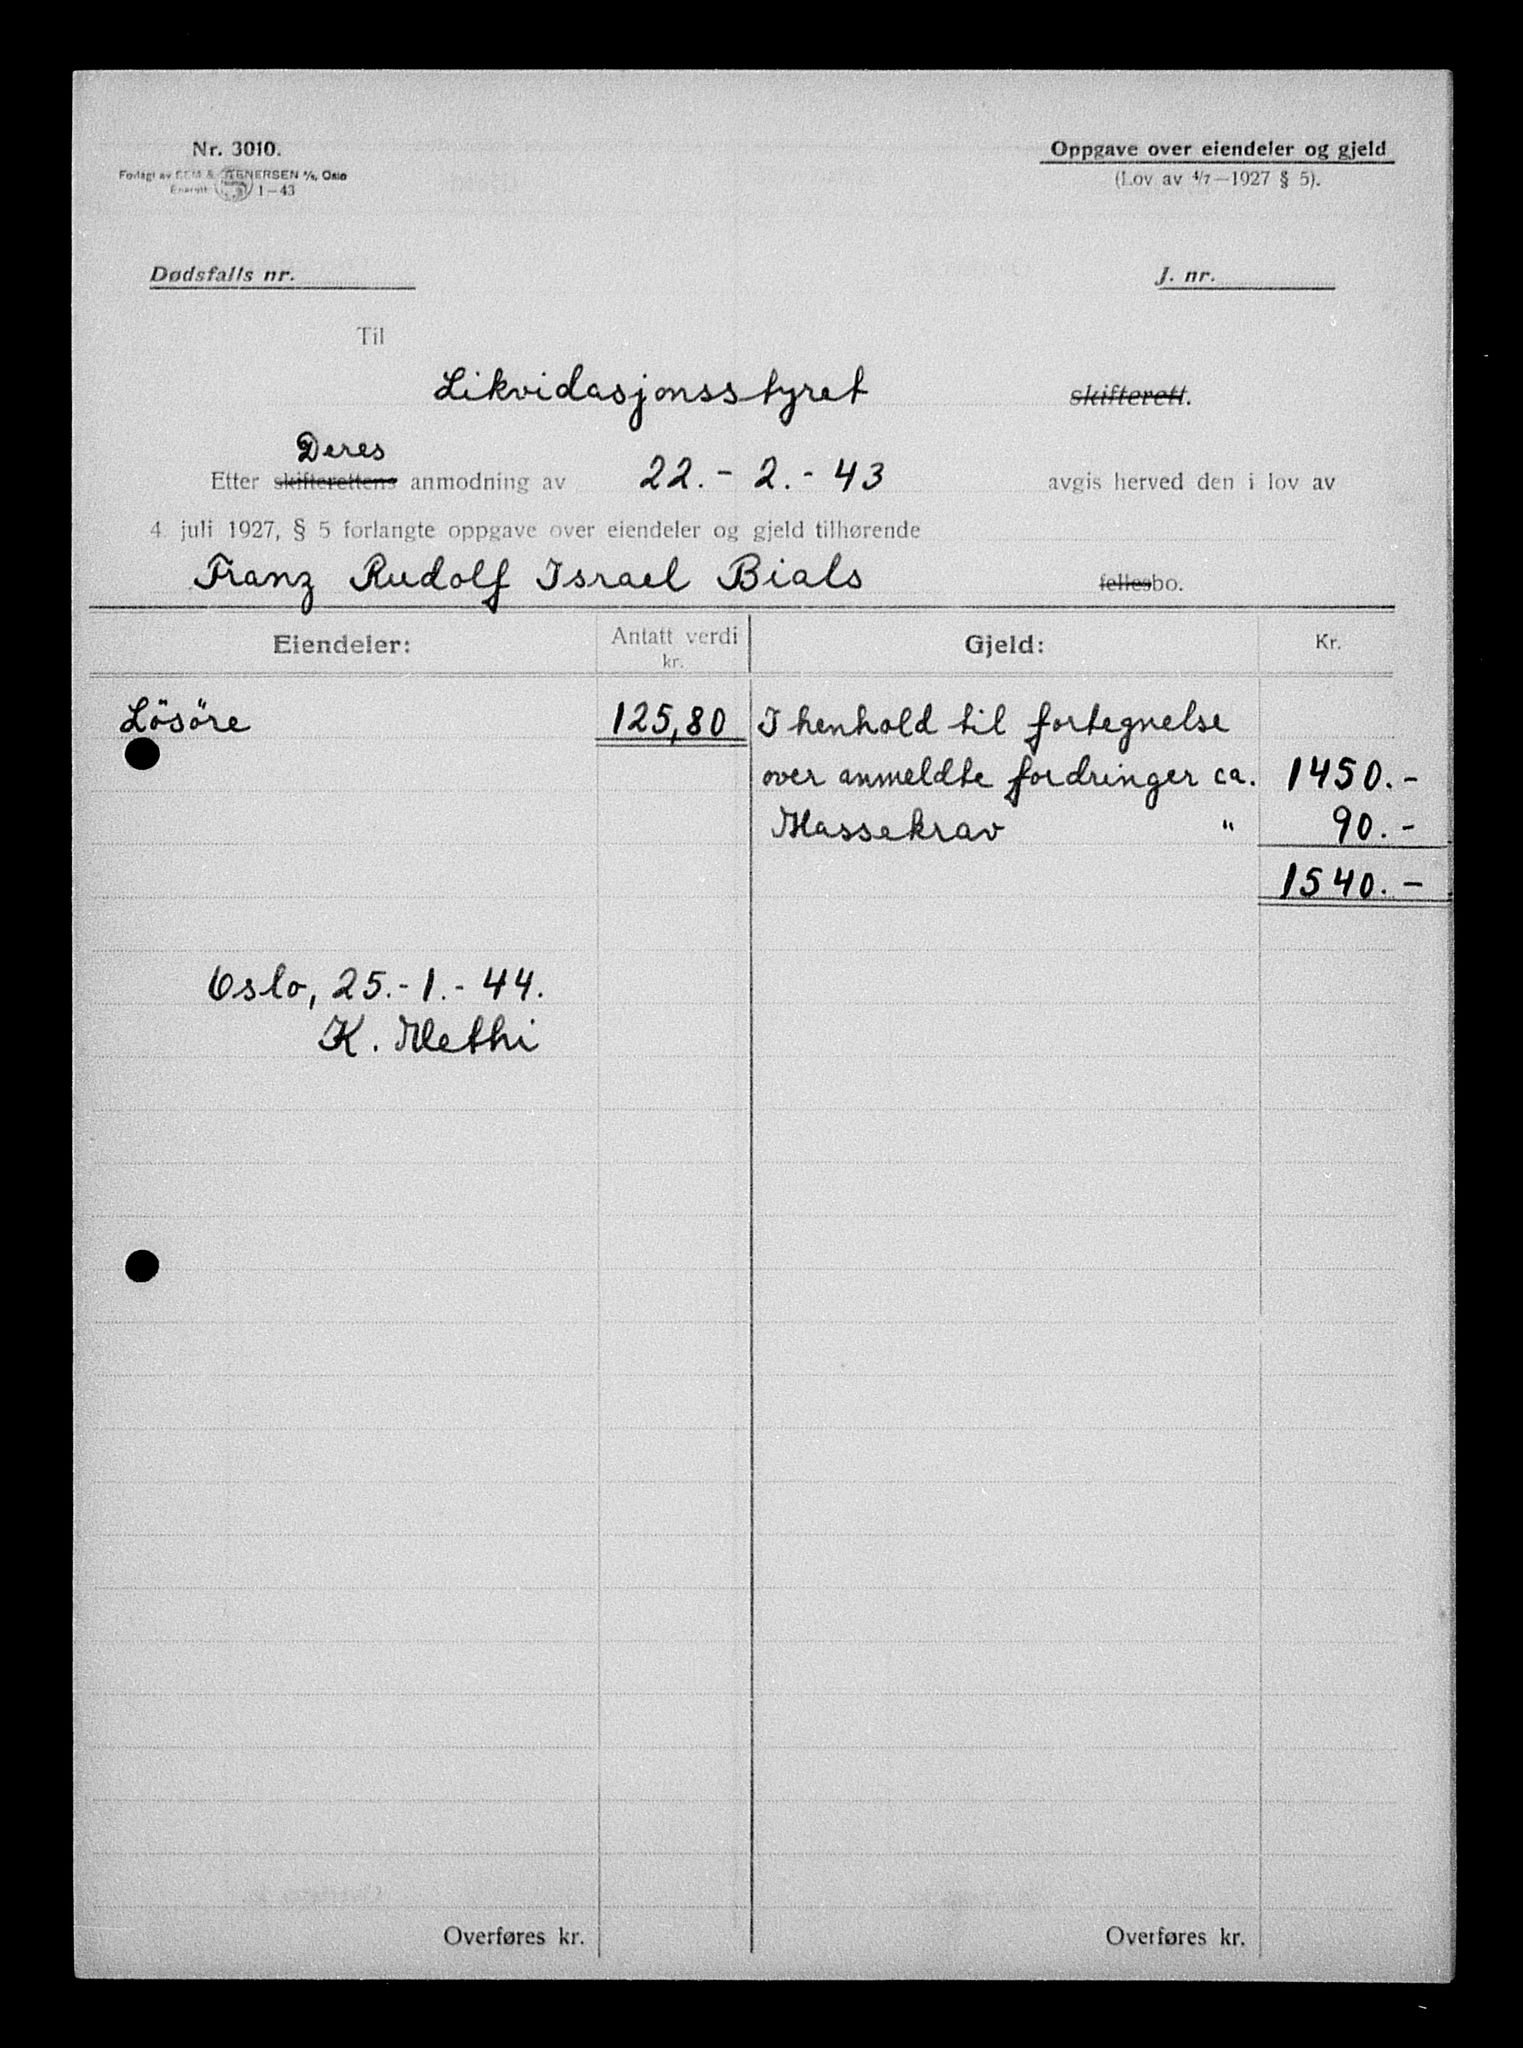 Nr. 3010.
Forlagt av SEM & STENERSEN A/S, Oslo
Enerett 1-43
Oppgave over eiendeler og gjeld
(Lov av 4/7-1927 § 5).
Dødsfalls nr.
J. nr.
Til
Likvidasjonsstyret skifterett.
Deres
Etter skifterettens anmodning av 22.-2.-43 avgis herved den i lov av
4. juli 1927, § 5 forlangte oppgave over eiendeler og gjeld tilhørende
Franz Rudolf Israel Bials fellesbo.
Eiendeler: Antatt verdi kr. Gjeld: Kr.
Lösöre 125,80 I henhold til fortegnelse
over anmeldte fordringer ca. 1450.-
Massekrav " 90.-
1540.-
Oslo, 25.-1.-44.
K. Methi
Overføres kr. Overføres kr.